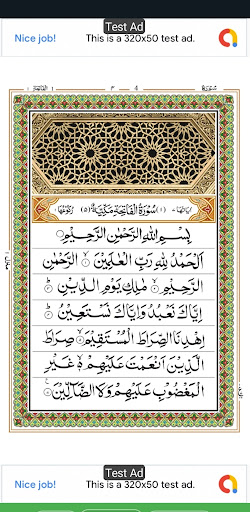 Test Ad
Nice job! This is a 320x50 test ad.
سُوْرَةُ الْفَاتِحَةِ مَكِّيَّةٌ (٥)
بِسْمِ اللّٰهِ الرَّحْمٰنِ الرَّحِيْمِ
اَلْحَمْدُ لِلّٰهِ رَبِّ الْعٰلَمِيْنَ ۙ الرَّحْمٰنِ
الرَّحِيْمِ ۙ مٰلِكِ يَوْمِ الدِّيْنِ ؕ
اِيَّاكَ نَعْبُدُ وَاِيَّاكَ نَسْتَعِيْنُ ؕ
اِهْدِنَا الصِّرَاطَ الْمُسْتَقِيْمَ ۙ صِرَاطَ
الَّذِيْنَ اَنْعَمْتَ عَلَيْهِمْ ۙ غَيْرِ
الْمَغْضُوْبِ عَلَيْهِمْ وَلَا الضَّآلِّيْنَ
Test Ad
Nice job! This is a 320x50 test ad.